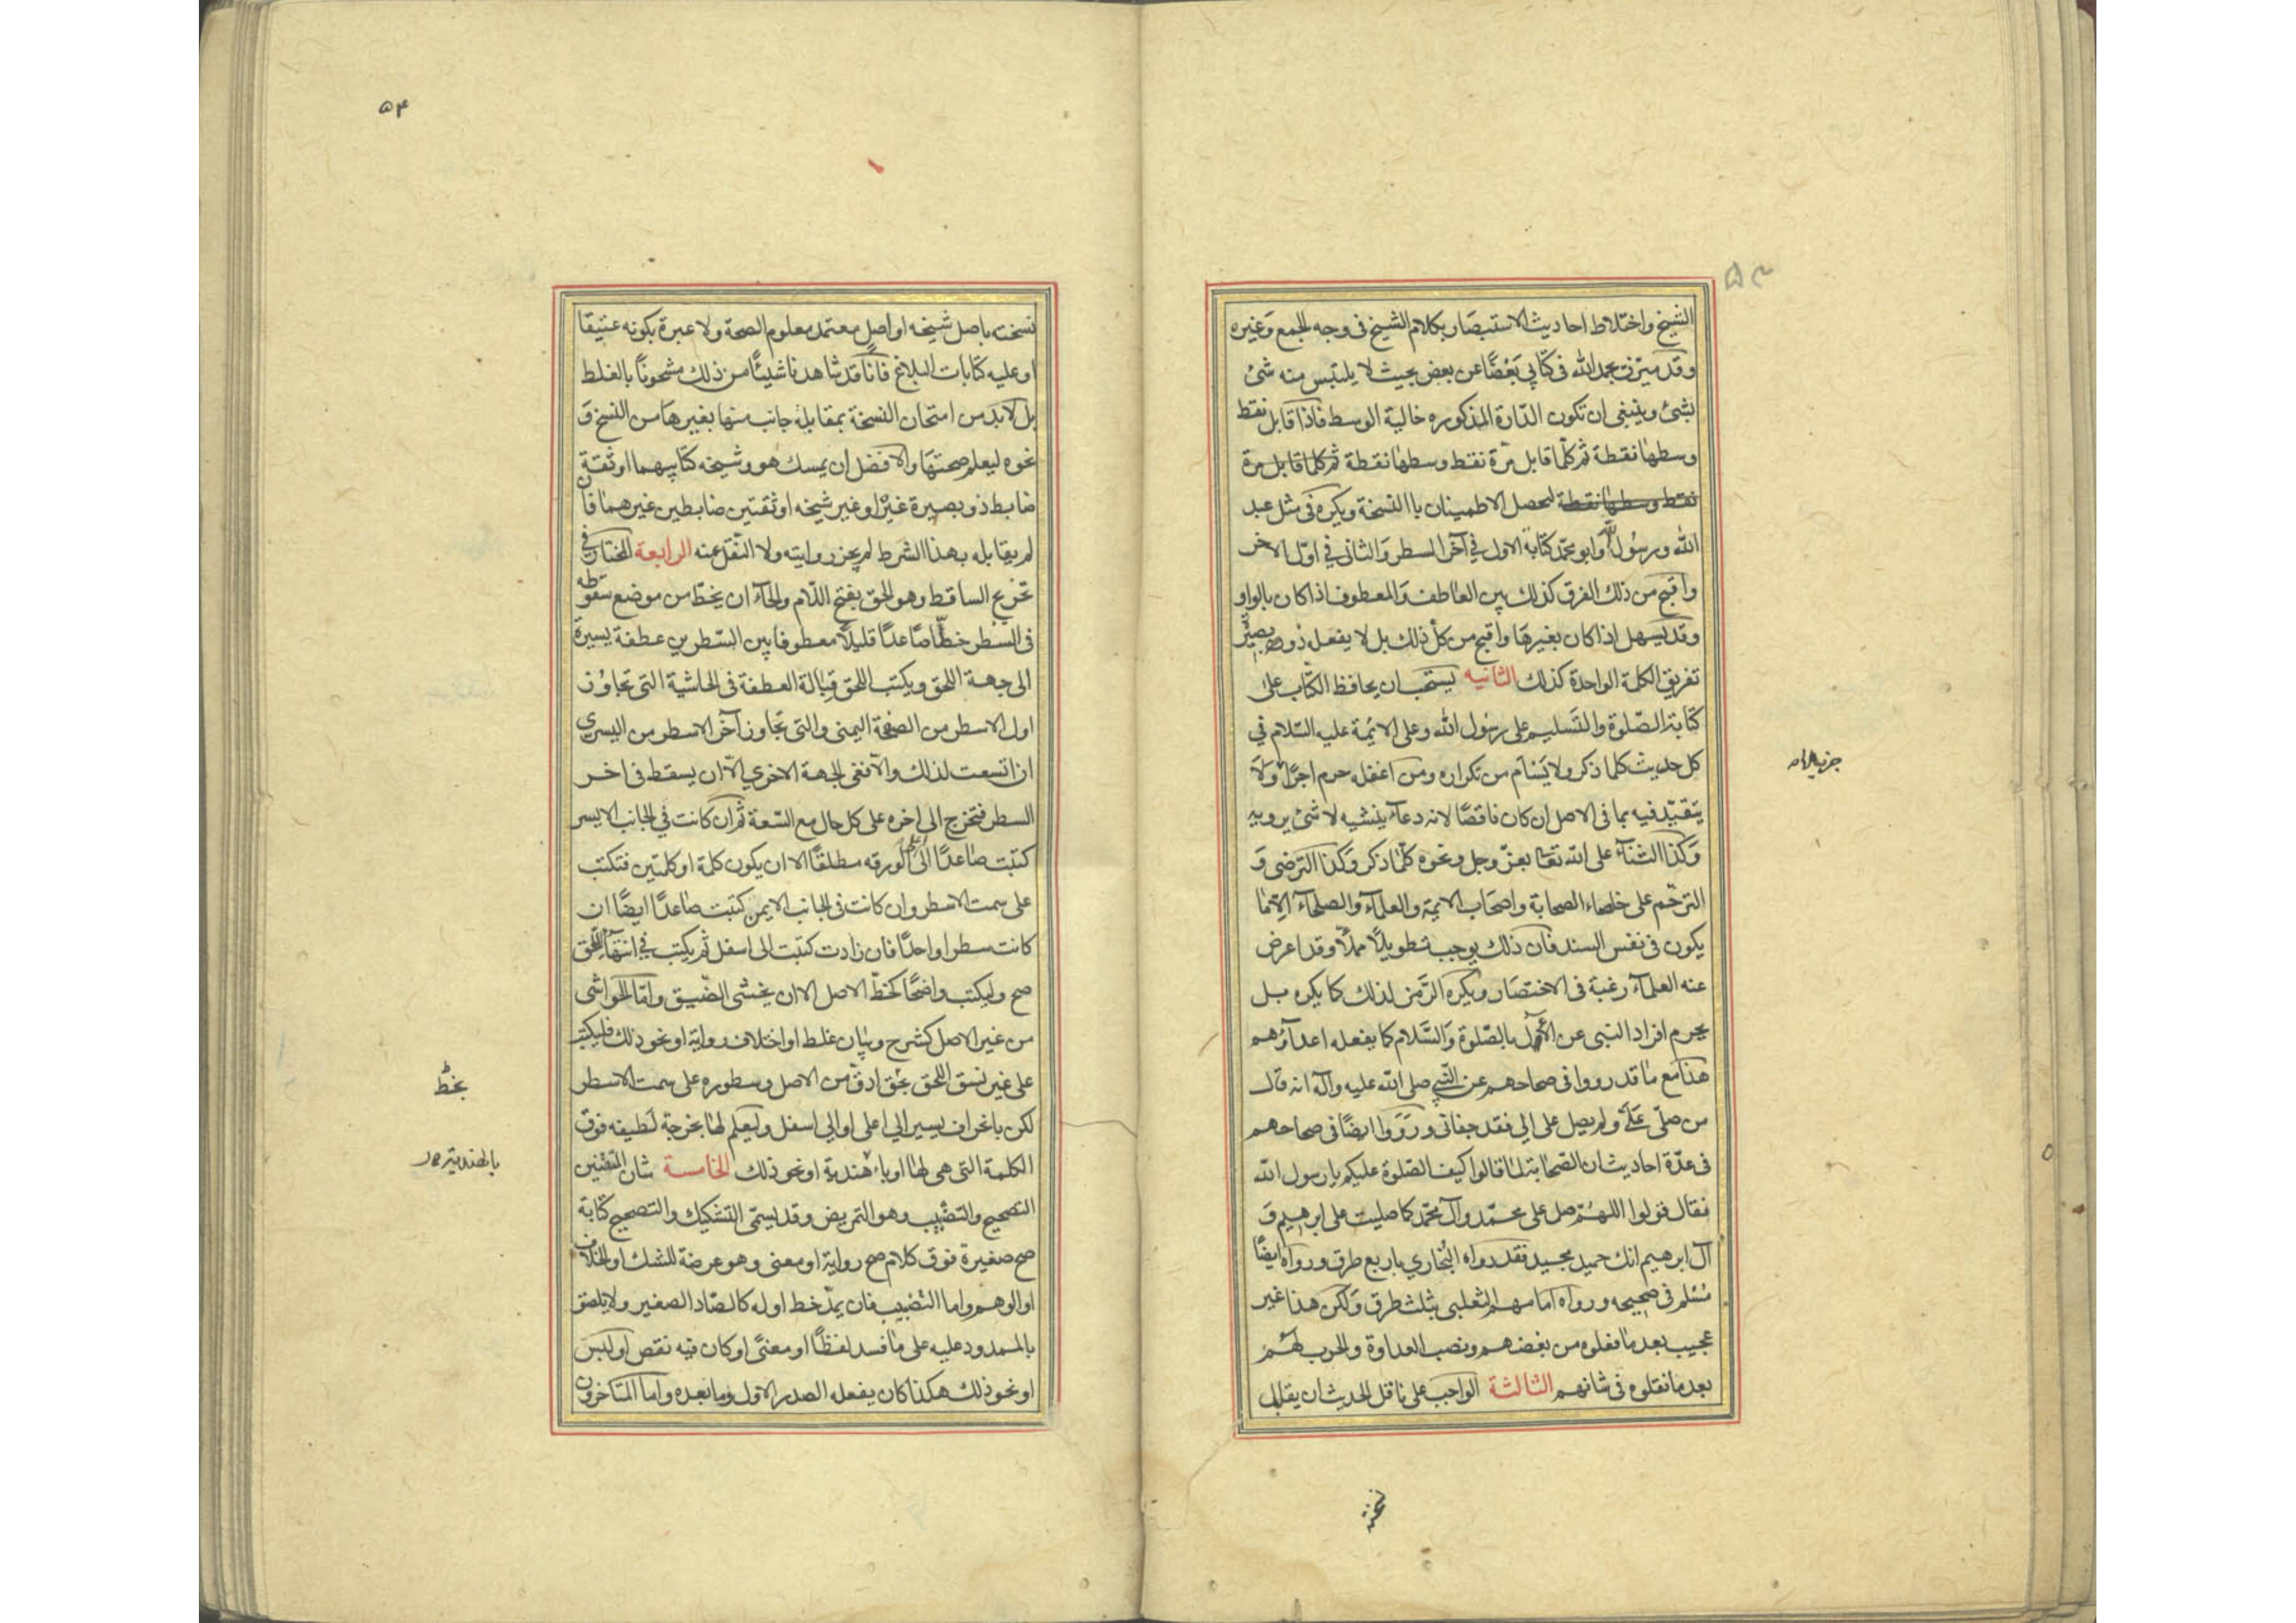 الشيخ واختلاط احاديث الاستبصار بكلام الشيخ فى وجه الجمع وغيره
وقد ميّزت بحمد الله فى كتابى بَعْضًا عن بعض بحيث لا يلتبس منه شئ
بشئ وينبغى ان تكون الدّارة المذكوره خالية الوسط فاذا قابل نقط
وسطها نقطة ثم كلّما قابل مرّة نقط وسطها نقطة ثم كلما قابل مرة
نقط وسطها نقطة لتحصل الاطمينان باالنسخة ويكره فى مثل عبد
الله ورسُول الله وابو محمّد كتابة الاول في آخر السطر وَالثانى في اوّل الاخر
واقبح من ذلك الفرق كذلك بين العاطف وَالمعطوف اذا كان بالواو
وقد يسهل اذا كان بغيرهَا واقبح من كلّ ذلك بل لا يفعله ذو بصيرة
تفريق الكلمة الواحدة كذلك الثانيه يستحب ان يحافظ الكتّاب على
كتابة الصّلوة والتَسليم على رسُول الله وعلى الائمة عليه السّلام في
كل حديث كلما ذكر ولا يَسْأم من تكراره ومن اغفله حرم اجرًا ولا
يتقيّد فيه بما فى الاصل ان كان ناقصًا لانه دعاء ينشيه لا شئ يرويه
وَكذا الثناء على الله تعا بعزّ وجل ونحوه كلّما ذكر وَكذا الترضى وَ
الترحّم على خلصاء الصحابة واصحَاب الائمة والعلماء والصلحاء الا ما
يكون فى نفس السند فان ذلك يوجب تطويلًا مملًا وقد اعرض
عنه العلماء رغبة فى الاختصَار ويكره الرّمز لذلك كما يكره بل
يحرم افراد النبى عن الآل بالصّلوة وَالسَّلام كما يفعله اعداؤهم
هذا مع مَا قد رووا فى صحاحهم عن النّبي صلى الله عليه وآله انه قال
من صلّى عَلىَّ ولم يصل على الى فقد جفانى وروَوا ايضًا فى صحاحهم
فى عدّة احاديث ان الصّحابة لما قالوا كيف الصّلوة عليكم يا رسول الله
فقال قولوا اللهمّ صل على محمّد وآل محمّد كما صليت على ابرهيم وَ
آل ابرهيم انك حميد مجيد فقد رواه البُخاري باربع طرق ورواه ايضًا
مُسْلم فى صحيحه ورواه امامهم الثعلبى بثلث طرق وَلكن هذا غير
عجيب بعد ما فعلوه من بغضهم ونصب العداوة والحرب لهُمْ
بعد ما نقلوه فى شانهم الثالثة الواجب على ناقل الحديث ان يقابل
نسخته
۵۴
نسخته باصل شيخه او اصل معتمد معلوم الصحة ولا عبرة بكونه عتيقا
او عليه كتابات البلاغ فانّا قد شاهدنا شيئًا من ذلك مشحونًا بالغلط
بل لابد من امتحان النسخة بمقابلة جانب منها بغيرهَا من النسخ وَ
نحوه ليعلم صحتهَا والافضل ان يمسك هو وشيخه كتابيهما او ثقة
ضابط ذو بصيرة غيره او غير شيخه او ثقتين ضابطين غيرهما فان
لم يقابله بهذا الشرط لم يجز روايته ولا النّقل عنه الرابعة المختار في
تخريج الساقط وهو اللحق بفتح اللّام والحاء ان يخطّ من موضع سقوطه
فى السّطر خطّا صَاعدًا قليلًا معطوفا بين السّطرين عطفة يسيرة
الى جهة اللحق ويكتب اللحق قِبالة العطفة فى الحاشية التى تجاوُز
اول الاسطر من الصفحة اليمنى والتى تجاوز آخر الاسطر من اليسرى
ان اتسعت لذلك والّا ففى الجهة الاخري الّا ان يسقط فى اخر
السطر فتخرج الى اخره على كل حال مع السّعة ثم ان كانت في الجانب الايسر
كتبت صَاعدًا الى اعلى الورقه مطلقًا الا ان يكون كلمة او كلمتين فتكتب
على سمت الاسطر وان كانت فى الجانب الايمن كتبت صَاعدًا ايضًا ان
كانت سطرا واحدًا فان زادت كتبت الى اسفل ثم يكتب في انتهاء اللّحق
صح وليكتب واضحًا كخطّ الاصل الا ان يخشى الضّيق وامّا الحواشى
من غير الاصل كشرح وبَيان غلط او اختلاف رواية او نحو ذلك فليكتب
على غير نسق اللحق بخط ادق من الاصل وسطوره على سمت الاسطر
لكن بانحراف يسير الي اعلى او الي اسفل وليعلم لهَا بخرجة لَطيفه فوق
الكلمة التى هى لها او باء هنديّة او نحو ذلك الخامسة شان المتقنين
التصحيح والتضْبيب وهو التمريض وقد يسمّى التشكيك والتصحيح كتابة
صح صغيرة فوق كلام صح رواية او معنى وهو عرضة للشك او الخلاف
او الوهم واما التضبيب فان يمدّ خط اوله كالصّاد الصغير ولا يلصق
بالممدود عليه على مَا فسد لفظًا او معنًى او كان فيه نقص او لبس
او نحو ذلك هكذا كان يفعله الصدر الاول وما بعده واما المتاخرون
بخطّ